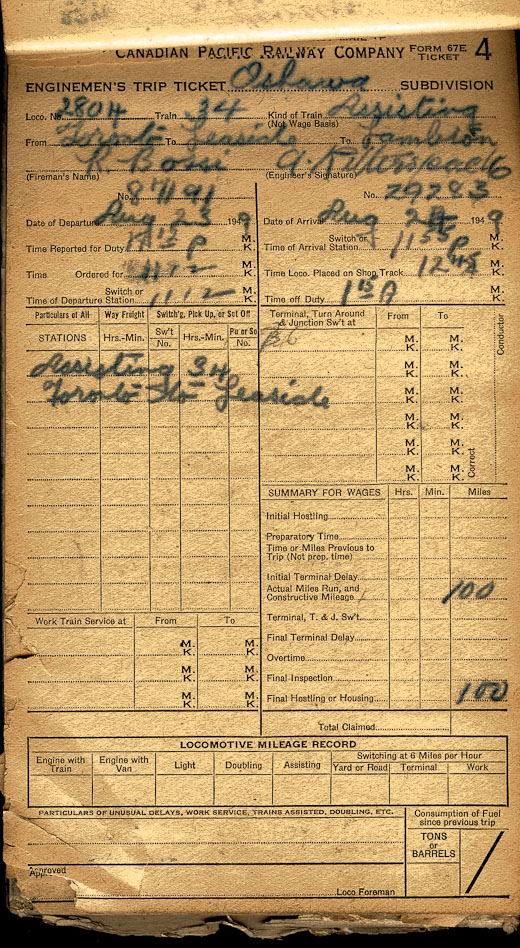 CANADIAN PACIFIC RAILWAY COMPANY FORM 67E TICKET 4
ENGINEMEN'S TRIP TICKET Oshawa SUBDIVISION
Loco. No. 2804 Train 34 Kind of Train Assisting
(Not Wage Basis)
From Toronto To Leaside To Lambton
R Bossi
(Fireman's Name) (Engineer's Signature)
No. 87191 No. 29283
Date of Departure Aug 23 1949 Date of Arrival Aug 1949
Time Reported for Duty M. K. Switch or Time of Arrival Station 1155 P M. K.
Time Ordered for M. K. Time Loco. Placed on Shop Track 1245 M. K.
Switch or Time of Departure Station 1112 M. K. Time off Duty 1 15 A M. K.
Particulars of All Way Freight Switch'g, Pick Up, or Set Off Terminal, Turn Around & Junction Sw't at From To
STATIONS Hrs.-Min. Sw't No. Hrs.-Min. Pu or So No.
Conductor
Correct
M. K. M. K.
M. K. M. K.
M. K. M. K.
M. K. M. K.
M. K. M. K.
M. K. M. K.
Assisting 34
Toronto to Leaside
SUMMARY FOR WAGES Hrs. Min. Miles
Initial Hostling
Preparatory Time
Time or Miles Previous to Trip (Not prep. time)
Initial Terminal Delay
Actual Miles Run, and Constructive Mileage 100
Terminal, T. & J. Sw't.
Final Terminal Delay
Overtime
Final Inspection
Final Hostling or Housing 100
Total Claimed
Work Train Service at From To
M. K. M. K.
M. K. M. K.
M. K. M. K.
LOCOMOTIVE MILEAGE RECORD
Engine with Train Engine with Van Light Doubling Assisting Switching at 6 Miles per Hour
Yard or Road Terminal Work
PARTICULARS OF UNUSUAL DELAYS, WORK SERVICE, TRAINS ASSISTED, DOUBLING, ETC.
Consumption of Fuel since previous trip
TONS or BARRELS
Approved
Loco Foreman